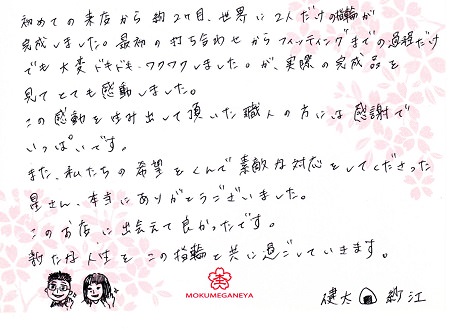 初めての来店から約2ヶ月、世界に2人だけの指輪が
完成しました。最初の打ち合わせからフィッティングまでの過程だけ
でも大変ドキドキ・ワクワクしました。が、実際の完成品を
見てとても感動しました。
この感動を生み出して頂いた職人の方には感謝で
いっぱいです。
また、私たちの希望をくんで素敵な対応をしてくださった
星さん、本当にありがとうございました。
このお店に出会えて良かったです。
新たな人生をこの指輪と共に過ごしていきます。
MOKUMEGANEYA
健太 紗江